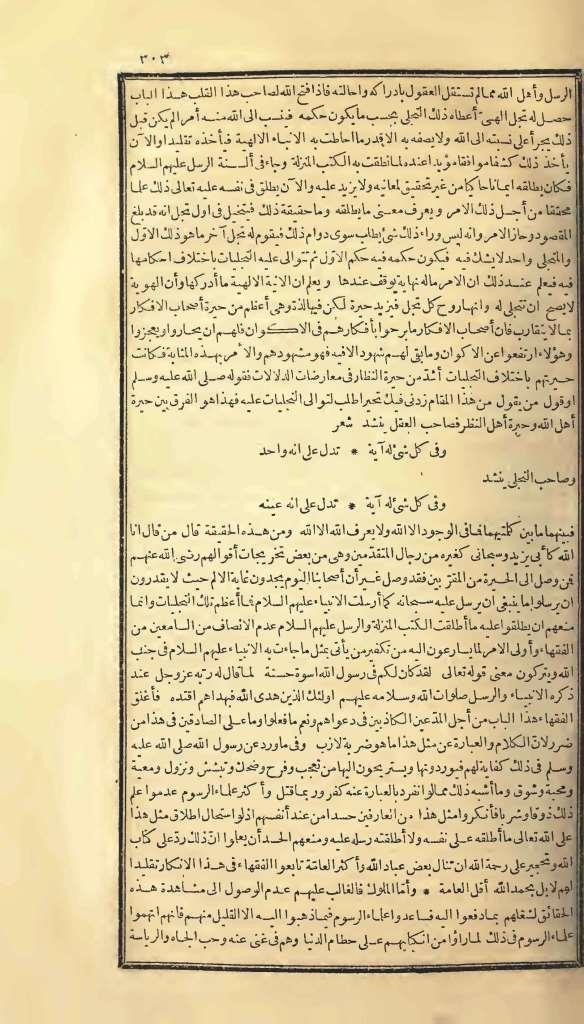 ٣٠٣
الرسل وأهل الله مما لم تستقل العقول بادراكه واحالته فاذا فتح الله لصاحب هذا القلب هذا الباب
حصل له تجل الهى أعطاه ذلك التجلى بحسب ما يكون حكمه فينسب الى الله منه أمرا لم يكن قبل
ذلك يجرأ على نسبته الى الله ولا يصفه به الا قدر ما احاطت به الانباء الالهية فيأخذه تقليدا والآن
يأخذ ذلك كشفا موافقا مؤيدا عنده لما نطقت به الكتب المنزلة وجاء فى ألسنة الرسل عليهم السلام
فكان يطلقه ايمانا حاكيا من غير تحقيق لمعانيه ولا يزيد عليه والآن يطلق فى نفسه عليه تعالى ذلك علما
محققا من أجل ذلك الامر ويعرف معنى ما يطلقه وما حقيقة ذلك فيتخيل فى اول تجل انه قد بلغ
المقصود وحاز الامر وانه ليس وراء ذلك شئ يطلب سوى دوام ذلك فيقوم له تجل آخر ما هو ذلك الاول
والتجلى واحد لا يشك فيه فيكون حكمه فيه حكم الاول ثم تتوالى عليه التجليات باختلاف احكامها
فيه فيعلم عند ذلك ان الامر ما له نهاية يوقف عندها ويعلم ان الانية الالهية ما أدركها وأن الهوية
لا يصح ان تتجلى له وانها روح كل تجل فيزيد حيرة لكن فيها لذة وهى أعظم من حيرة أصحاب الافكار
بما لا يتقارب فان أصحاب الافكار ما برحوا بأفكارهم فى الاكوان فلهم ان يحاروا ويعجزوا
وهؤلاء ارتفعوا عن الاكوان وما بقى لهم شهود الا فيه فهو مشهودهم والامر بهذه المثابة فكانت
حيرتهم باختلاف التجليات أشد من حيرة النظار فى معارضات الدلالات فقوله صلى الله عليه وسلم
او قول من يقول من هذا المقام زدنى فيك تحيرا طلب لتوالى التجليات عليه فهذا هو الفرق بين حيرة
أهل الله وحيرة أهل النظر فصاحب العقل ينشد شعر
وفى كل شئ له آية * تدل على انه واحد
وصاحب التجلى ينشد
وفى كل شئ له آية * تدل على انه عينه
فبينهما ما بين كلمتيهما فما فى الوجود الا الله ولا يعرف الله الا الله ومن هذه الحقيقة قال من قال انا
الله كأبى يزيد وسبحانى كغيره من رجال المتقدمين وهى من بعض تخريجات أقوالهم رضى الله عنهم
فمن وصل الى الحيرة من الفريقين فقد وصل غير أن أصحابنا اليوم يجدون غاية الالم حيث لا يقدرون
ان يرسلوا ما ينبغى ان يرسل عليه سبحانه كما أرسلت الانبياء عليهم السلام فما أعظم تلك التجليات وانما
منعهم ان يطلقوا عليه ما أطلقت الكتب المنزلة والرسل عليهم السلام عدم الانصاف من السامعين من
الفقهاء وأولى الامر لما يسارعون اليه من تكفير من يأتى بمثل ما جاءت به الانبياء عليهم السلام فى جنب
الله ويتركون معنى قوله تعالى لقد كان لكم فى رسول الله اسوة حسنة لما قال له ربه عز وجل عند
ذكره الانبياء والرسل صلوات الله وسلامه عليهم اولئك الذين هدى الله فبهداهم اقتده فأغلق
الفقهاء هذا الباب من أجل المدعين الكاذبين فى دعواهم ونعم ما فعلوا وما على الصادقين فى هذا من
ضرر لان الكلام والعبارة عن مثل هذا ما هو ضربة لازب وفى ما ورد عن رسول الله صلى الله عليه
وسلم فى ذلك كفاية لهم فيوردونها ويستريحون اليها من تعجب وفرح وضحك وتبشش ونزول ومعية
ومحبة وشوق وما أشبه ذلك مما لو انفرد بالعبارة عنه كفر وربما قتل وأكثر علماء الرسوم عدموا علم
ذلك ذوقا وشربا فأنكروا مثل هذا من العارفين حسدا من عند أنفسهم اذ لو استحال اطلاق مثل هذا
على الله تعالى ما أطلقه على نفسه ولا أطلقته رسله عليه ومنعهم الحسد أن يعلموا ان ذلك رد على كتاب
الله وتحجير على رحمة الله ان تنال بعض عباد الله وأكثر العامة تابعوا الفقهاء فى هذا الانكار تقليدا
لهم لا بل بحمد الله أقل العامة * وأما الملوك فالغالب عليهم عدم الوصول الى مشاهدة هذه
الحقائق لشغلهم بما دفعوا اليه فساعدوا علماء الرسوم فيما ذهبوا اليه الا القليل منهم فانهم اتهموا
علماء الرسوم فى ذلك لما رأوا من انكبابهم على حطام الدنيا وهم فى غنى عنه وحب الجاه والرياسة